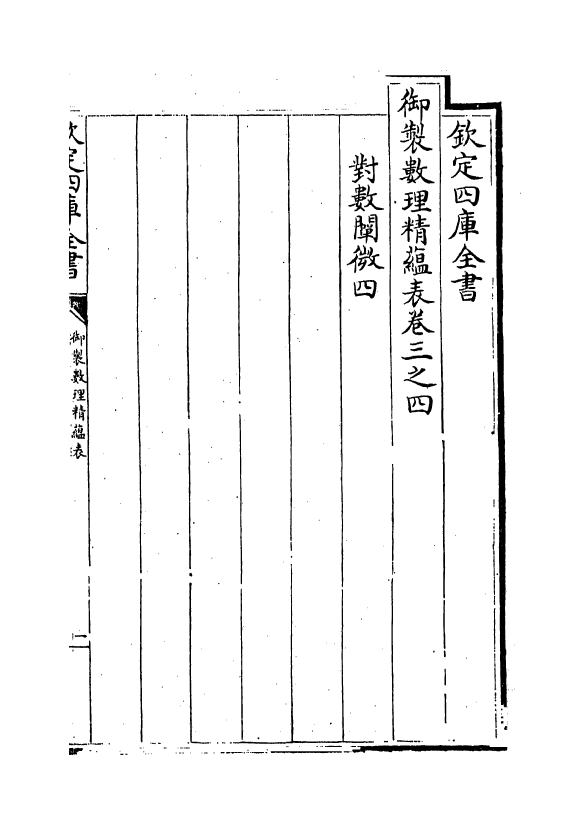 欽定四庫全書
御製數理精藴表卷三之四
對數闡微四
欽定四庫全書
御製數理精藴表